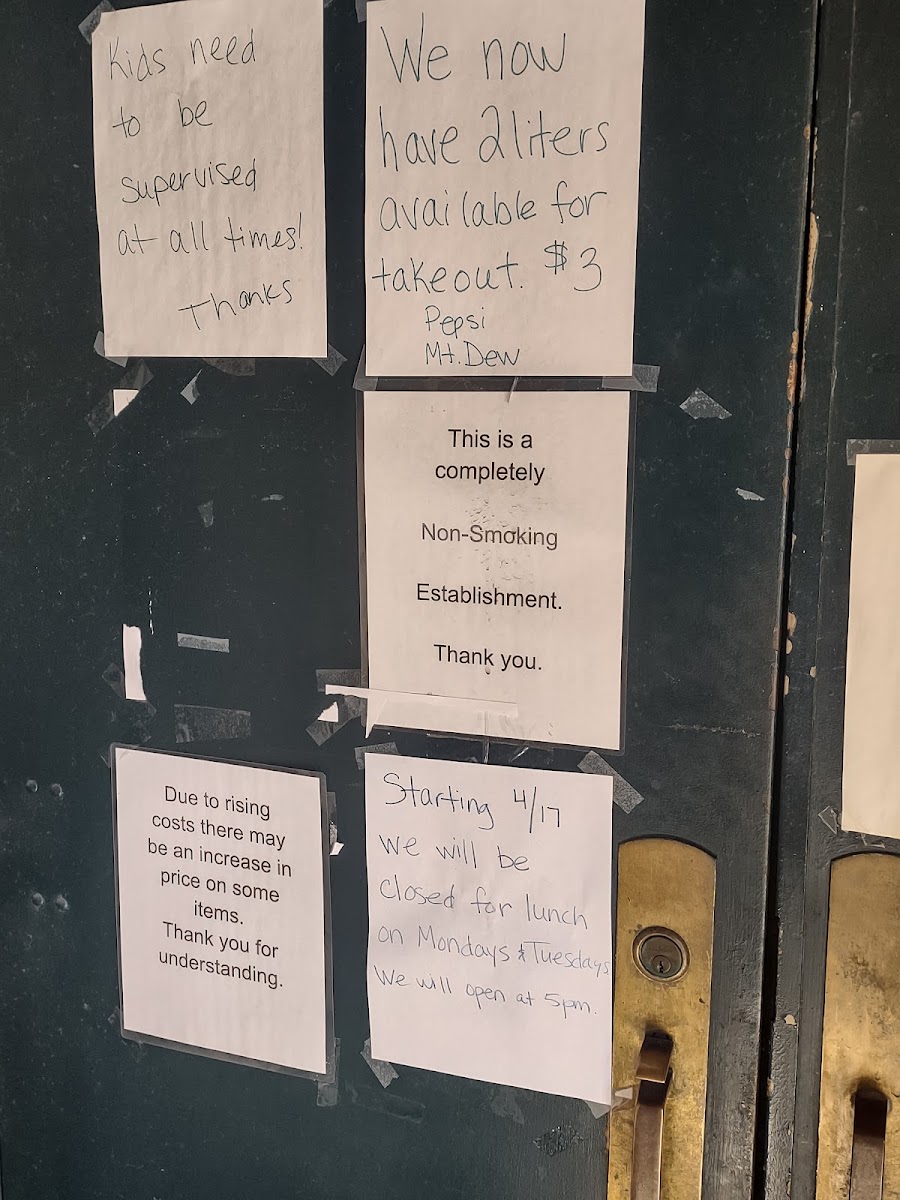 Kids need
to be
supervised
at all times!
Thanks
We now
have 2 liters
available for
takeout. $3
Pepsi
Mt. Dew
This is a
completely
Non-Smoking
Establishment.
Thank you.
Due to rising
costs there may
be an increase in
price on some
items.
Thank you for
understanding.
Starting 4/17
we will be
closed for lunch
on Mondays & Tuesdays
We will open at 5pm.